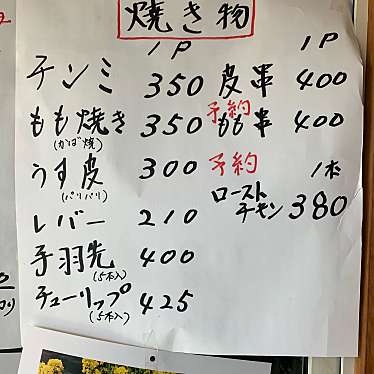 焼き物
1P
チンミ 350
もも焼き 350
(かば焼)
うす皮 300
(パリパリ)
レバー 210
手羽先 400
(5本入)
チューリップ 425
(5本入)
1P
皮串 400
予約
もも串 400
予約
1本
ローストチキン 380